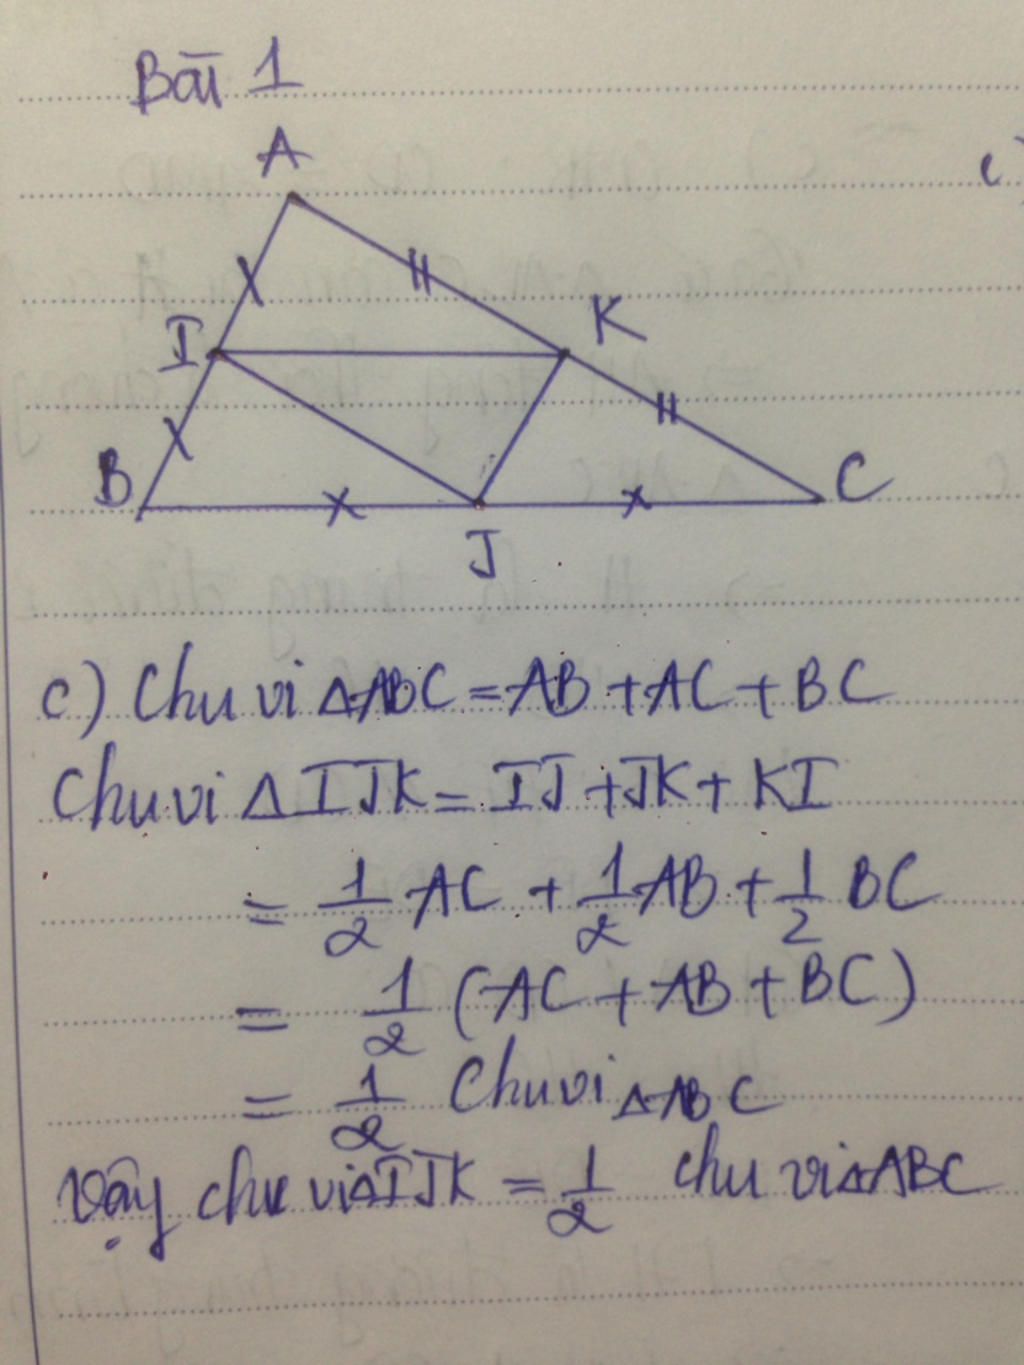 Bài 1
A
c)
I
K
B
C
J
c) Chu vi ΔABC = AB + AC + BC
Chu vi Δ IJK = IJ + JK + KI
= 1/2 AC + 1/2 AB + 1/2 BC
= 1/2 (AC + AB + BC)
= 1/2 Chu vi ΔABC
Vậy chu vi ΔIJK = 1/2 chu vi ΔABC